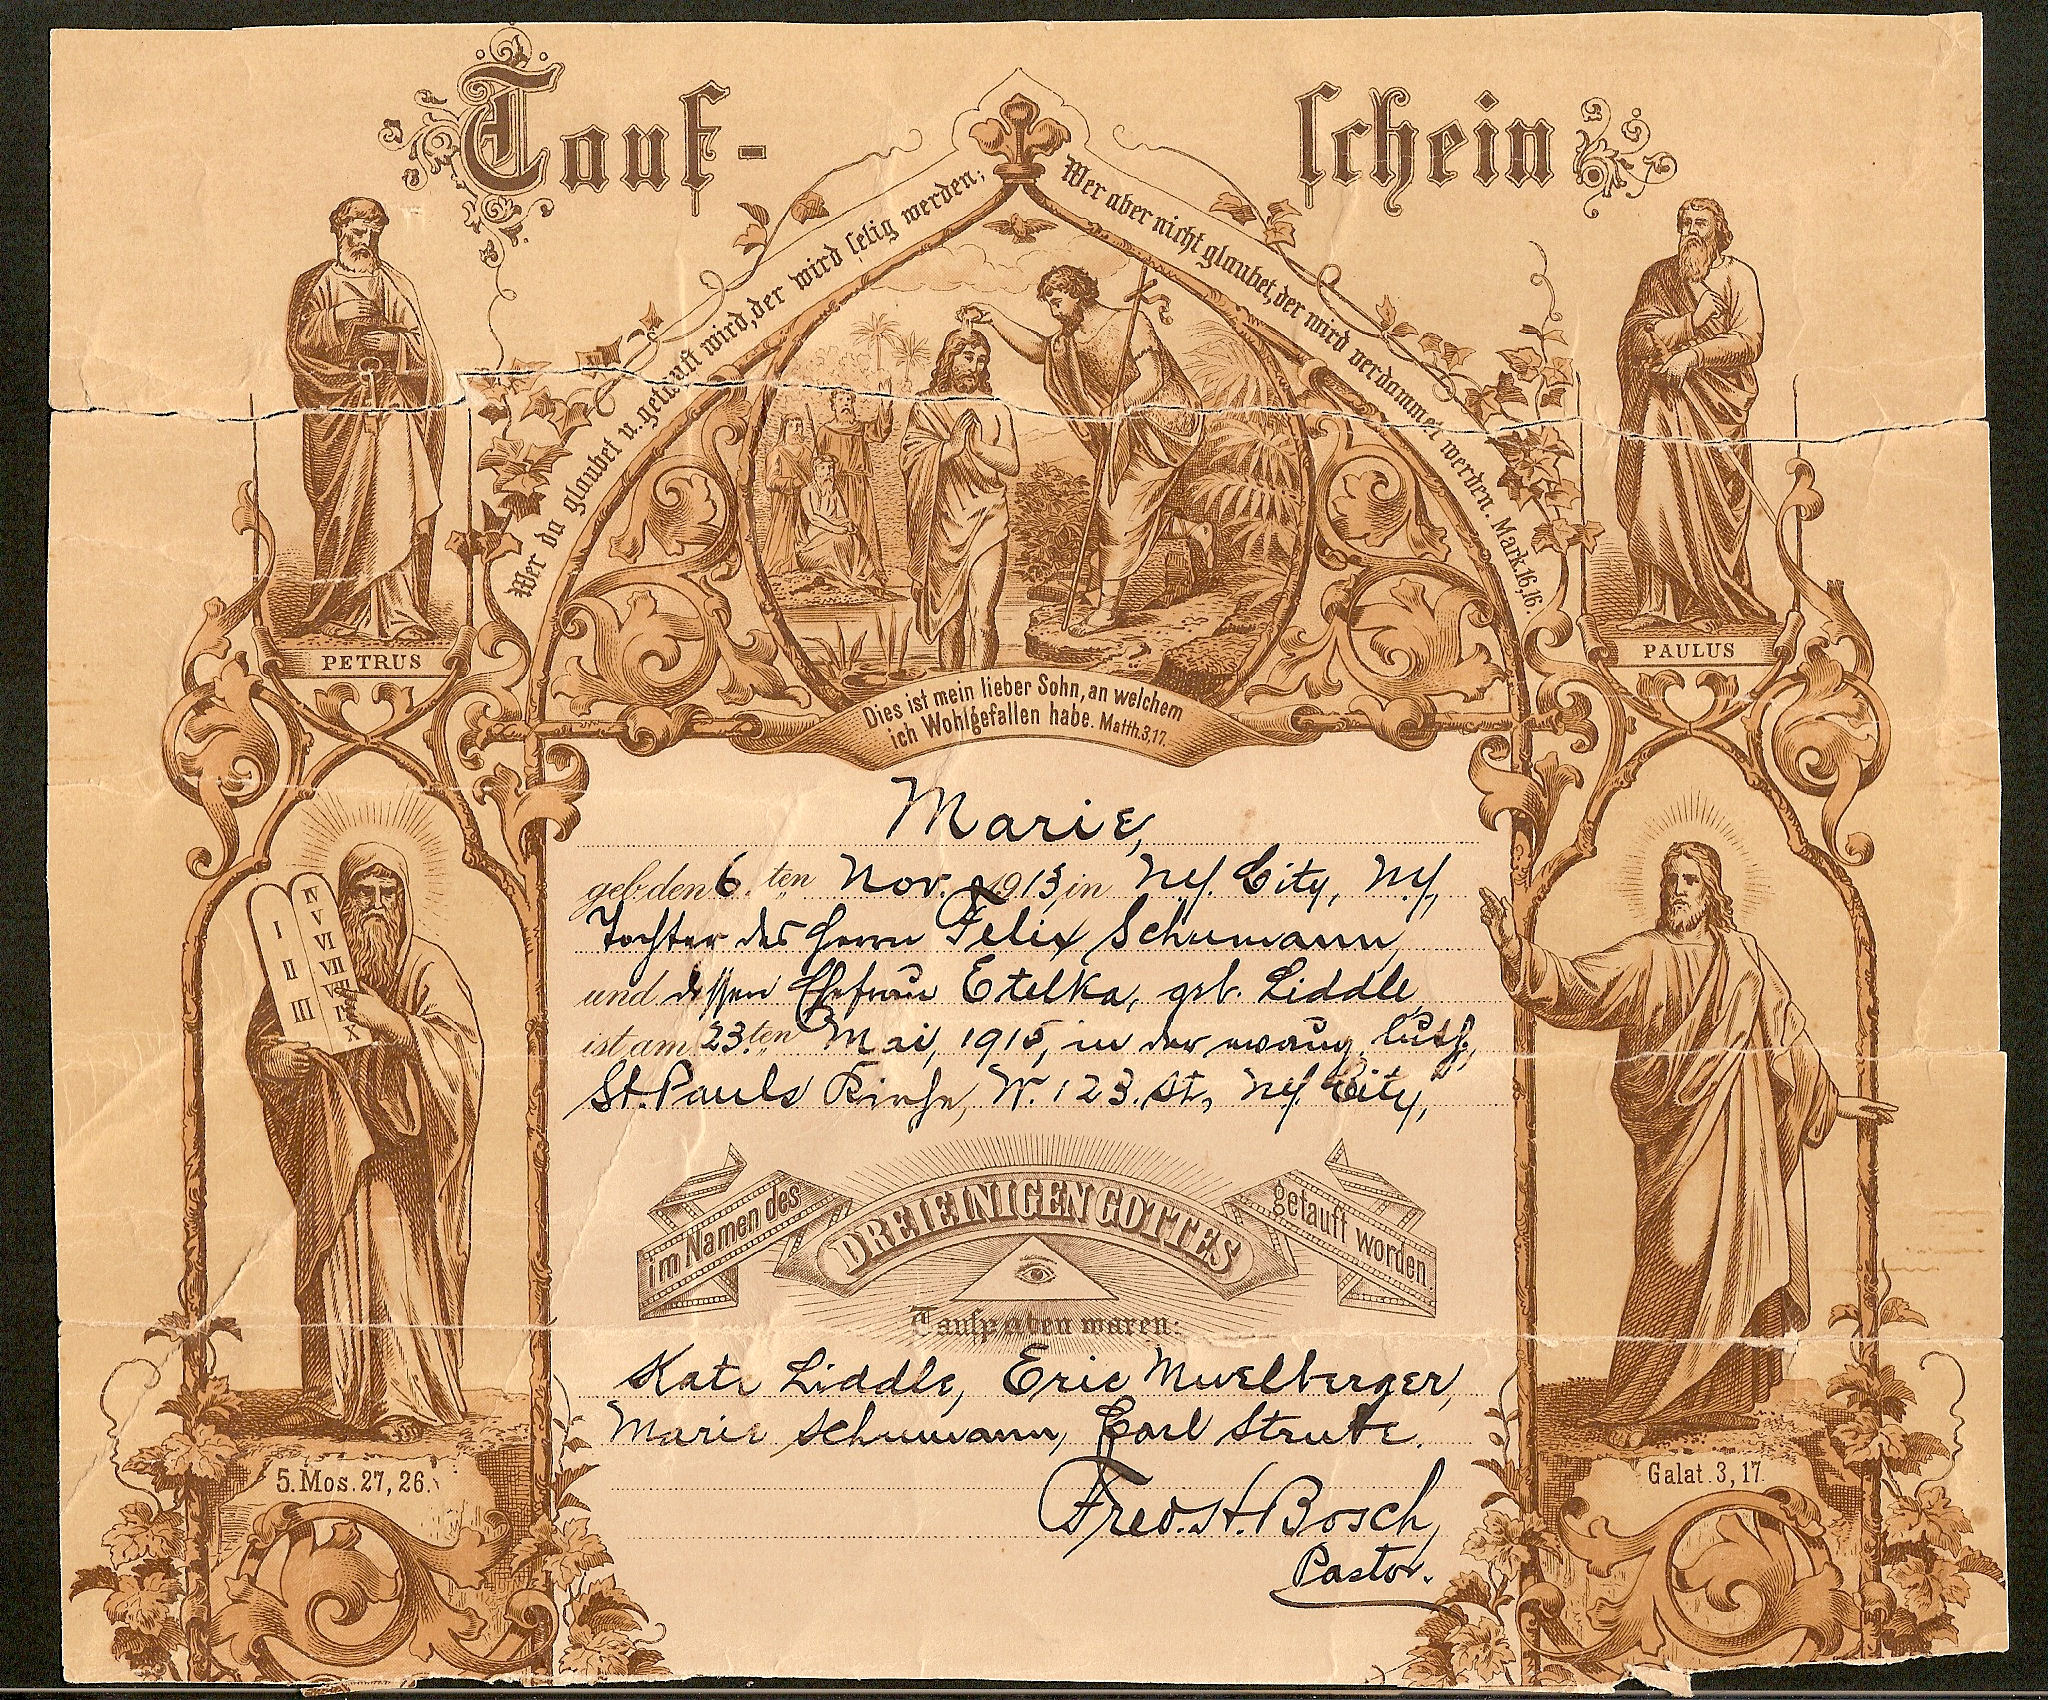 Tauf-schein
Wer da glaubet u. getauft wird, der wird selig werden;
Wer aber nicht glaubet, der wird verdammet werden. Mark. 16, 16.
PETRUS
PAULUS
Dies ist mein lieber Sohn, an welchem
ich Wohlgefallen habe. Matth. 3, 17.
I II III IV V VI VII VIII IX X
Marie,
geb. den 6.ten Nov. 1913, in N.Y. City, N.Y.,
Tochter des Herrn Felix Schumann,
und dessen Ehefrau Etelka, geb. Liddle,
ist am 23.ten Mai, 1915, in der evang. luth.
St. Pauls Kirche, W. 123. St., N.Y. City,
im Namen des DREIEINIGEN GOTTES getauft worden
Taufpathen waren:
Kate Liddle, Eric Muelberger,
Marie Schumann, Carl Strute.
Fred. H. Bosch,
Pastor.
5. Mos. 27, 26.
Galat. 3, 17.